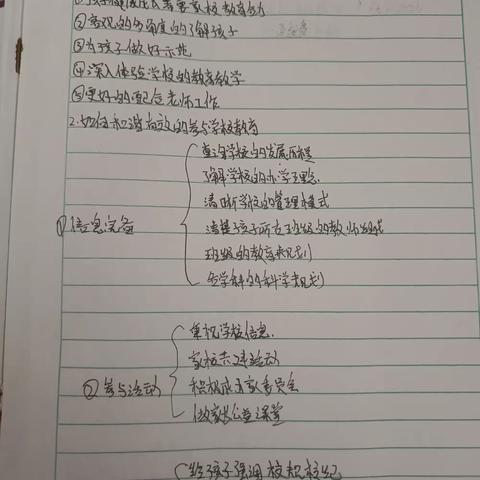 ②客观的多角度的了解孩子
③为孩子做好示范
④深入体验学校的教育教学
⑤更好的配合老师工作
2.如何和谐有效的参与学校教育
①信息完备
查询学校的发展历程
了解学校的办学理念
清晰学校的管理模式
清楚孩子所在班级的教师组成
班级的教育规划
各学科的科学规划
②参与活动
重视学校信息
家校共建活动
积极成立家委员会
做家长公益课堂
给孩子强调校规校纪